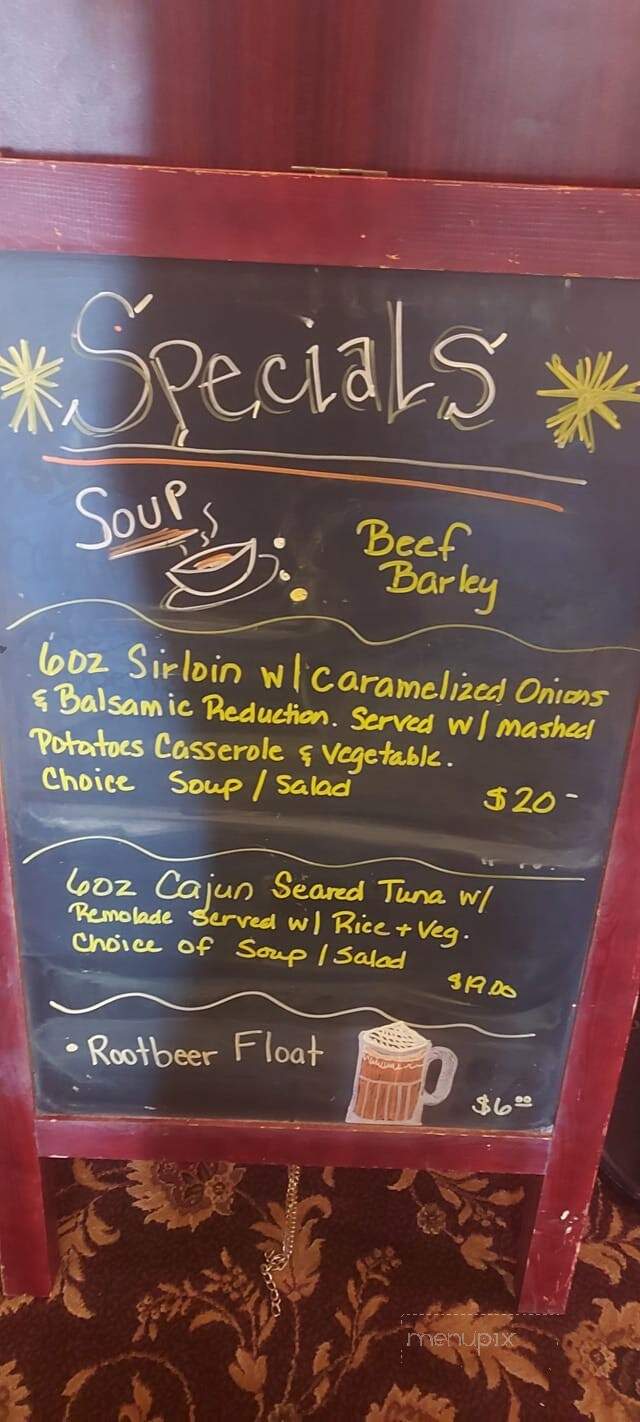 Specials
Soup
Beef
Barley
6oz Sirloin w/ Caramelized Onions
& Balsamic Reduction. Served w/ mashed
Potatoes Casserole & Vegetable.
Choice Soup / Salad
$20-
6oz Cajun Seared Tuna w/
Remolade Served w/ Rice + Veg.
Choice of Soup / Salad
$19.00
• Rootbeer Float
$6.00
menupix